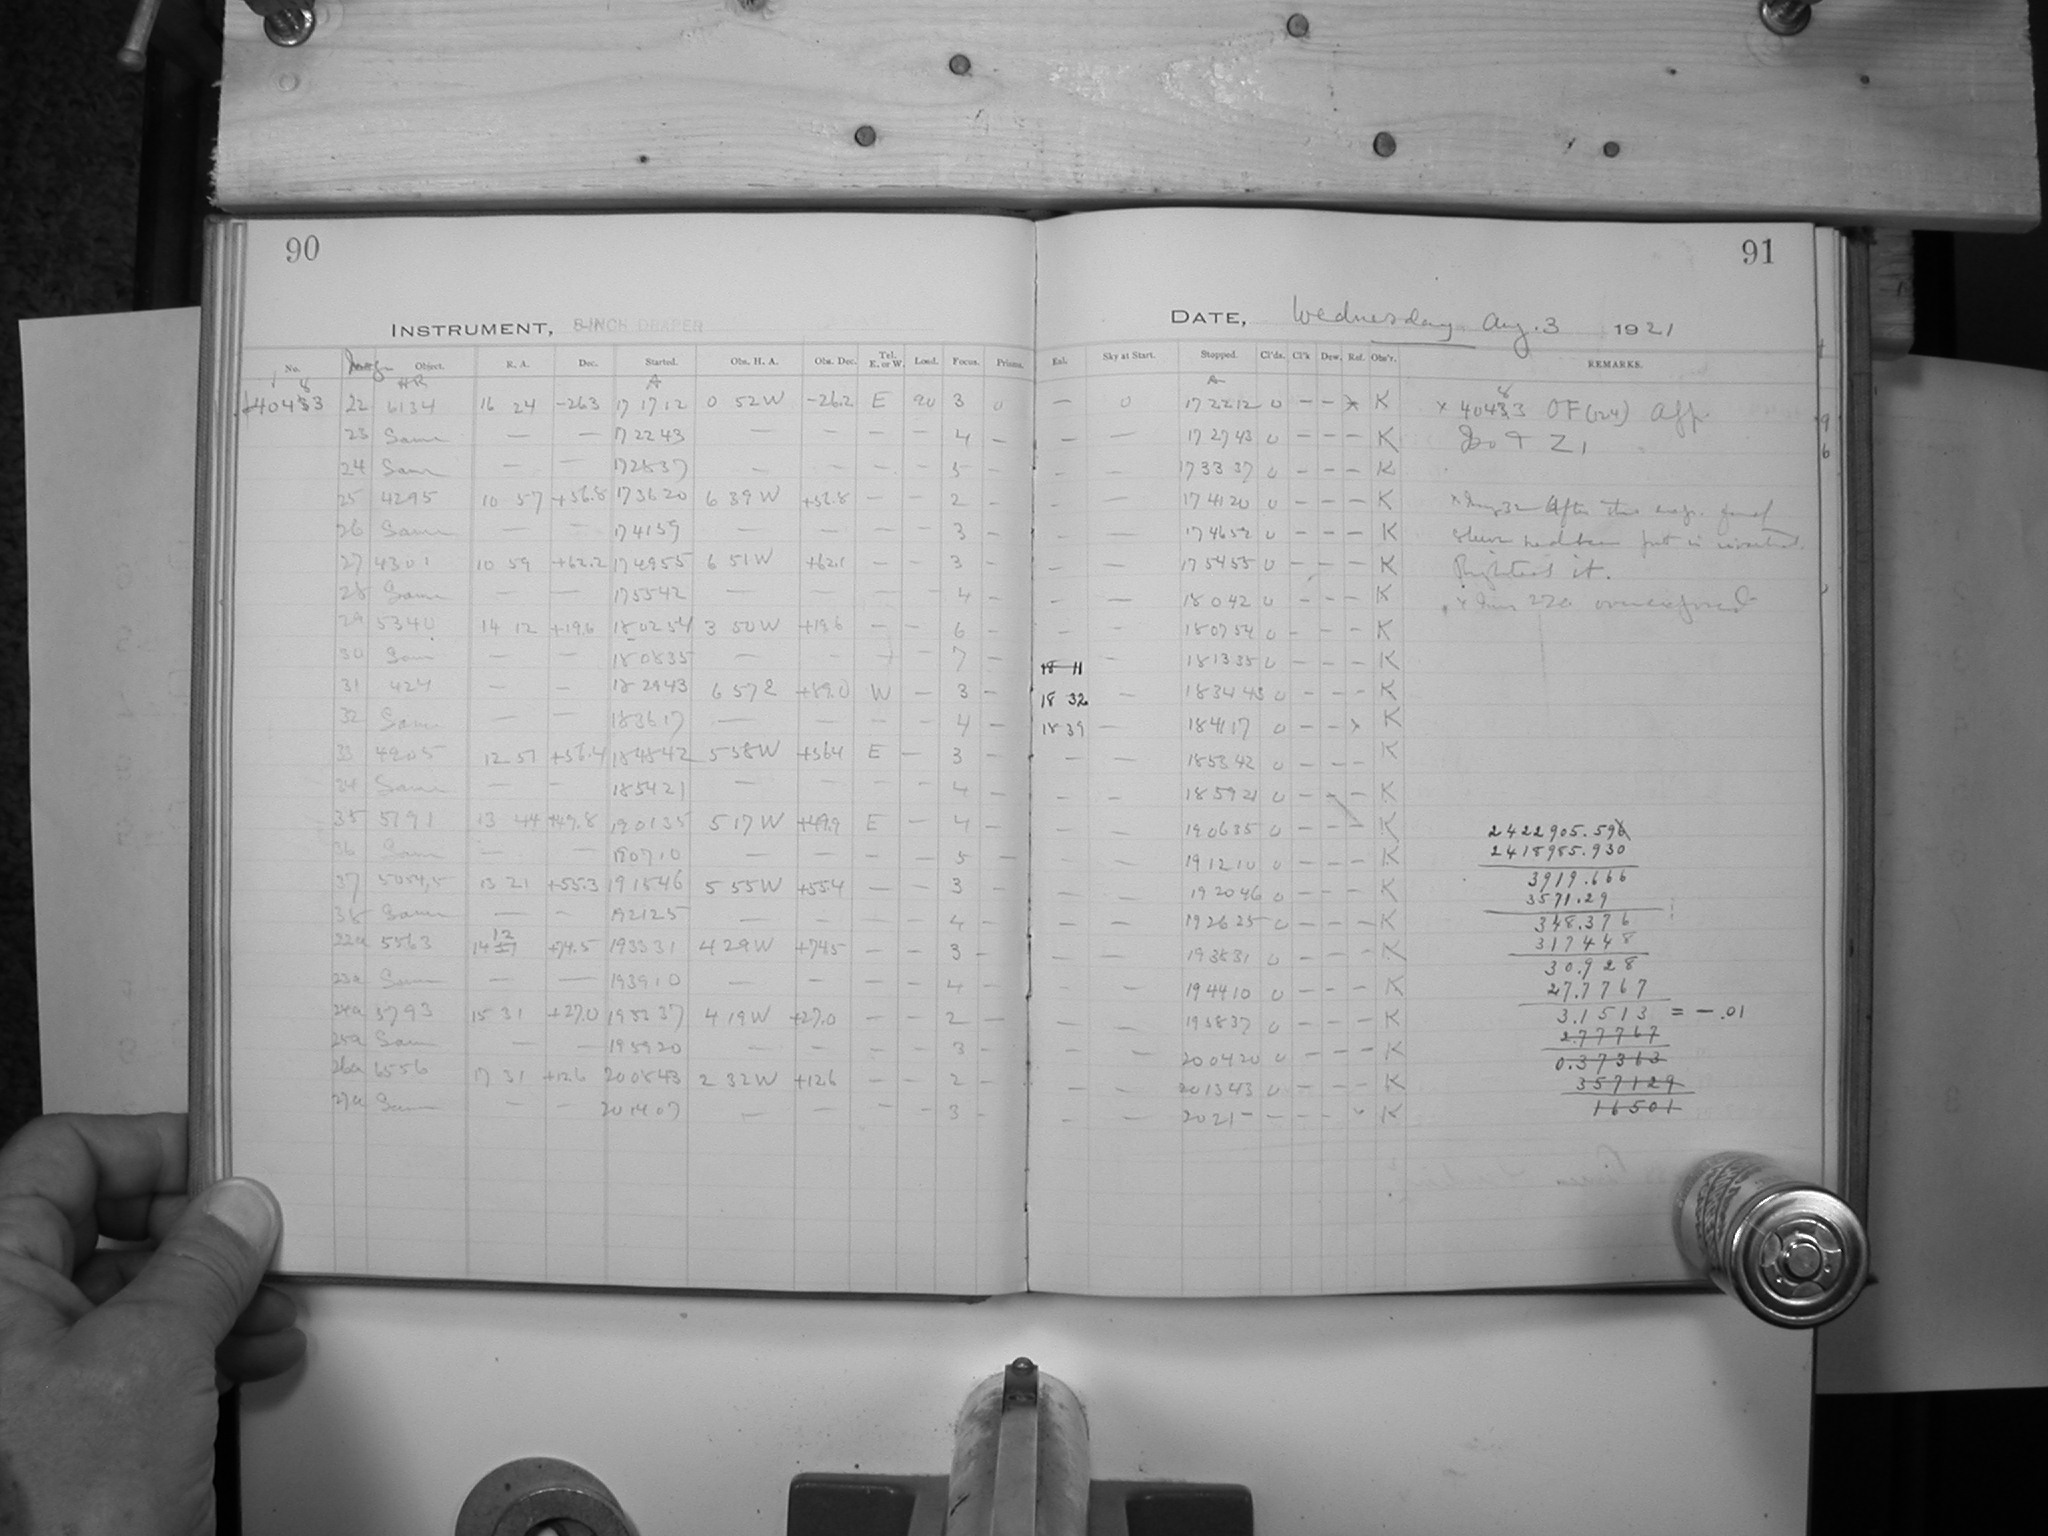 90
INSTRUMENT, 8-INCH DRAPER
No. Object. R. A. Dec. Started. Obs. H. A. Obs. Dec. Tel. E. or W. Load. Focus. Prisms.
HR A
22 6134 16 24 -26.3 17 17 12 0 52 W -26.2 E 90 3 0
23 Same — — 17 22 43 — — — — 4 —
24 Same — — 17 28 37 — — — — 5 —
25 4295 10 57 +56.8 17 36 20 6 39 W +56.8 — — 2 —
26 Same — — 17 41 59 — — — — 3 —
27 4301 10 59 +62.2 17 49 55 6 51 W +62.1 — — 3 —
28 Same — — 17 55 42 — — — — 4 —
29 5340 14 12 +19.6 18 02 54 3 50 W +19.6 — — 6 —
30 Same — — 18 08 35 — — — 7 —
31 424 — — 18 29 43 6 57 E +89.0 W — 3 —
32 Same — — 18 36 17 — — — 4 —
33 4905 12 51 +56.4 18 48 42 5 58 W +56.4 E — 3 —
34 Same — — 18 54 21 — — — — 4 —
35 5191 13 44 +49.8 19 01 35 5 17 W +49.9 E — 4 —
36 Same — — 19 07 10 — — — — 5 —
37 5054,5 13 21 +55.3 19 15 46 5 55 W +55.4 — — 3 —
38 Same — — 19 21 25 — — — — 4 —
22a 5563 14 +74.5 19 33 31 4 29 W +74.5 — — 3 —
23a Same — — 19 39 10 — — — — 4 —
24a 5793 15 31 +27.0 19 53 37 4 19 W +27.0 — — 2 —
25a Same — — 19 59 20 — — — — 3 —
26a 6556 17 31 +12.6 20 08 43 2 32 W +12.6 — — 2 —
27a Same — — 20 14 07 — — — — 3 —
91
DATE, Wednesday Aug. 3 1921
Sky at Start. Stopped. Cl'ds. Cl'k Dew. Ref. Obs'r. REMARKS.
A
— 0 17 22 12 0 — — x K
— — 17 27 43 0 — — — K
17 33 37 0 — — — K
— — 17 41 20 0 — — — K
— — 17 46 59 0 — — — K
— — 17 54 55 0 — — — K
— — 18 0 42 0 — — — K
— — 18 07 54 0 — — — K
18 11 — 18 13 35 0 — — — K
18 32 — 18 34 43 0 — — — K
18 39 — 18 41 17 0 — — x K
— — 18 53 42 0 — — — K
— — 18 59 21 0 — — K
— — 19 06 35 0 — — — K
— — 19 12 10 0 — — — K
— — 19 20 46 0 — — — K
— — 19 26 25 0 — — — K
— — 19 38 31 0 — — — K
— — 19 44 10 0 — — — K
— — 19 58 37 0 — — — K
— — 20 04 20 0 — — — K
— — 20 13 43 0 — — — K
— — 20 21 — — — — K
After this
Righted it.
22a overexposed
2422905.596
2418985.930
3919.666
3571.29
348.376
317448
30.928
27.7767
3.1513 = -.01
2.77767
0.37363
357129
16501